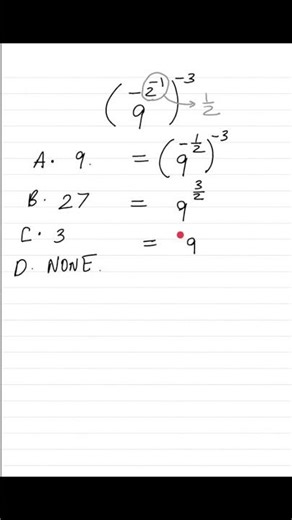 (9^{-2^{-1}})^{-3} → 1/2
A. 9. = (9^{-1/2})^{-3}
B. 27 = 9^{3/2}
C. 3 = 9
D. NONE.